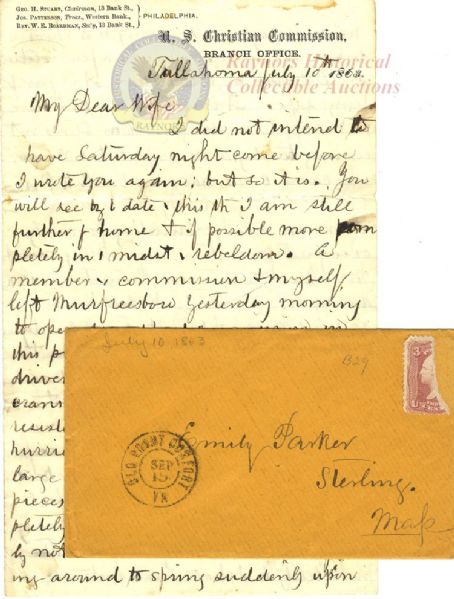 Geo. H. Stuart, Chairman, 13 Bank St.,
Jos. Patterson, Treas., Western Bank,
Rev. W. E. Boardman, Sec'y, 13 Bank St.,
PHILADELPHIA.
U. S. Christian Commission,
BRANCH OFFICE.
Raynors Historical
Collectible Auctions
Tullahoma July 10th 1863.
My Dear Wife
I did not intend to
have Saturday night come before
I write you again; but so it is. You
will see by date this th I am still
further f home & if possible more com
pletely in midst rebeldom. A
member commission & myself
left Murfreesboro yesterday morning
to open
this p
driven
resist
hurri
large
pieces
pletely
by not
ing around to spring suddenly upon
July 10 1863
B29
3
OLD POINT COMFORT
SEP
15
VA
Emily Parker
Sterling.
Mass